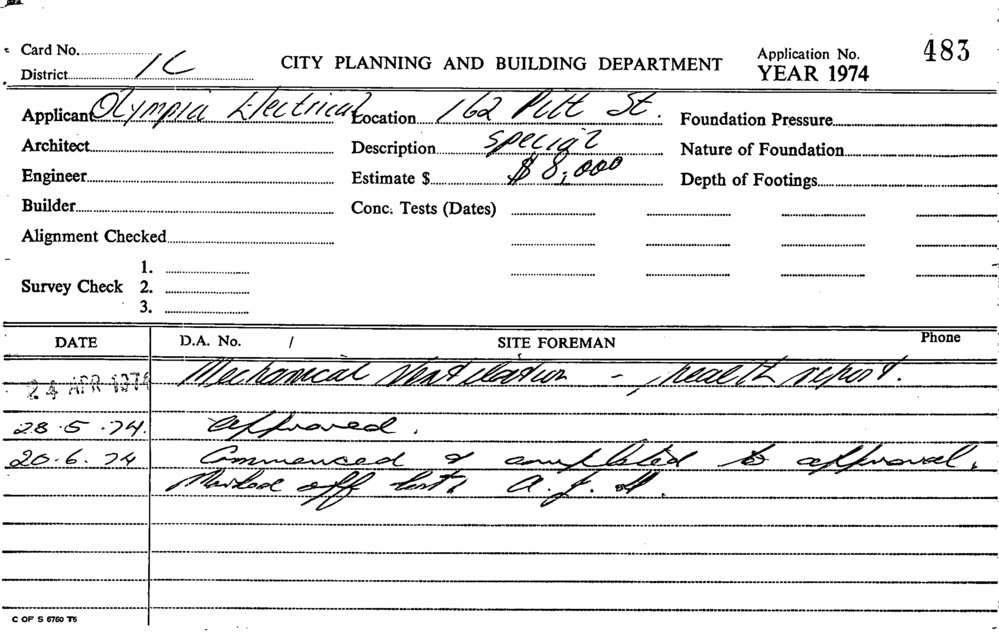 Card No.
District 1C
CITY PLANNING AND BUILDING DEPARTMENT
Application No. 483
YEAR 1974
Applicant Olympia Electrical Location 162 Pitt St. Foundation Pressure
Architect Description special Nature of Foundation
Engineer Estimate $ $8,000 Depth of Footings
Builder Conc. Tests (Dates)
Alignment Checked
1.
Survey Check 2.
3.
DATE D.A. No. / SITE FOREMAN Phone
24 APR 1974 Mechanical Ventilation - health report.
28.5.74. approved.
20.6.74 Commenced & completed to approval.
Marked off A.J.H.
C OF S 6760 T6